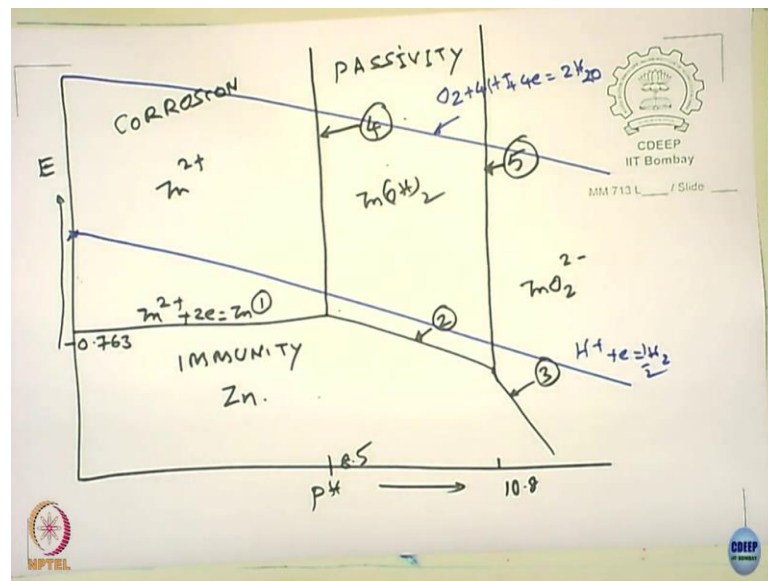 PASSIVITY
CORROSION
O2+4H+4e=2H2O
④
CDEEP
IIT Bombay
MM 713 L____ / Slide ____
E
Zn2+
Zn(OH)2
⑤
ZnO2 2-
Zn2+ +2e=Zn ①
②
-0.763
IMMUNITY
Zn.
H+ +e=½H2
③
8.5
pH
10.8
NPTEL
CDEEP
IIT BOMBAY